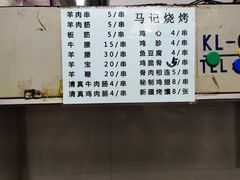 马记烧烤
羊肉串 5/串
羊肉筋 5/串
板筋 5/串
牛腰 15/串
羊腰 30/串
羊宝 20/串
羊鞭 20/串
清真牛肉肠 4/串
清真鸡肉肠 4/串
鸡心 4/串
鸡胗 4/串
鱼豆腐 4/串
鸡脆骨 5/串
骨肉相连 5/串
秘制鸡翅 8/串
新疆烤馕 8/张
KL-
TEL